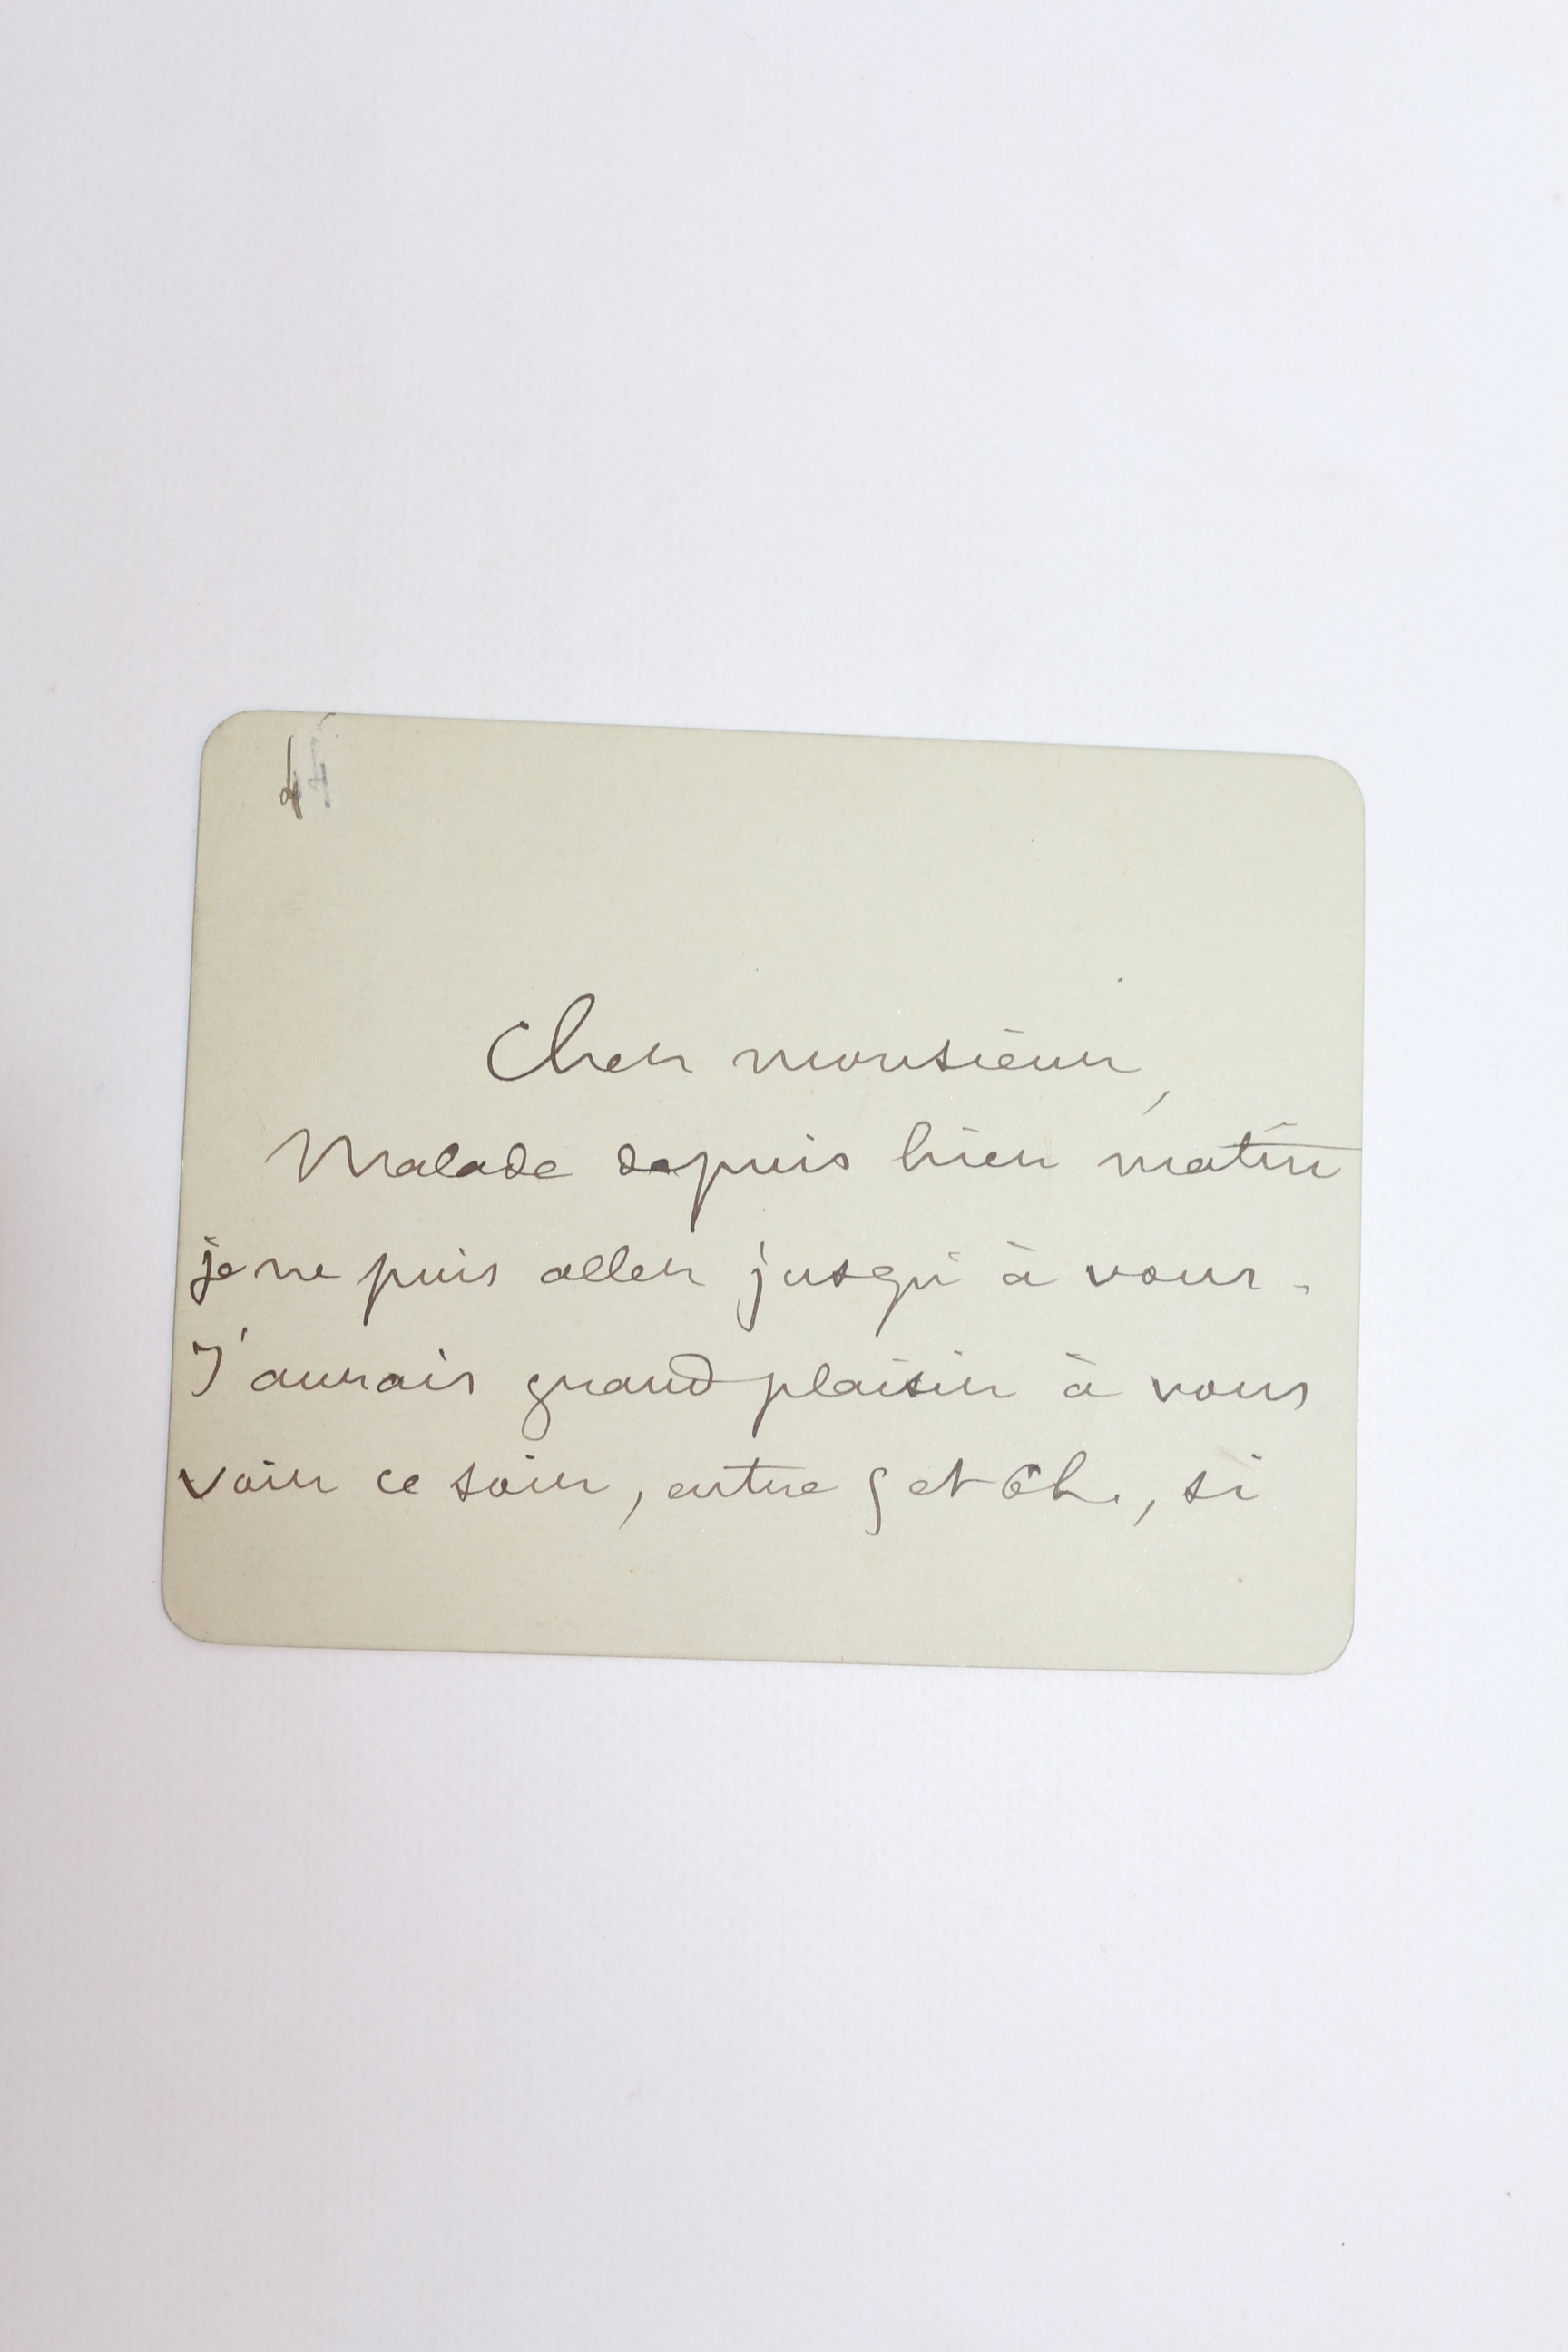 Cher monsieur,
Malade depuis hier matin
je ne puis aller jusqu'à vous.
J'aurais grand plaisir à vous
voir ce soir, entre 5 et 6h., si